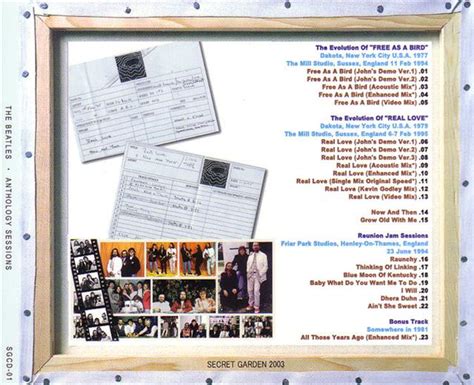 THE BEATLES • ANTHOLOGY SESSIONS
SGCD-01
The Evolution Of "FREE AS A BIRD"
Dakota, New York City U.S.A. 1977
The Mill Studio, Sussex, England 11 Feb 1994
Free As A Bird (John's Demo Ver.1) .01
Free As A Bird (John's Demo Ver.2) .02
Free As A Bird (Acoustic Mix*) .03
Free As A Bird (Enhanced Mix*) .04
Free As A Bird (Video Mix) .05
The Evolution Of "REAL LOVE"
Dakota, New York City U.S.A. 1979
The Mill Studio, Sussex, England 6-7 Feb 1995
Real Love (John's Demo Ver.1) .06
Real Love (John's Demo Ver.2) .07
Real Love (John's Demo Ver.3) .08
Real Love (Acoustic Mix*) .09
Real Love (Enhanced Mix*) .10
Real Love (Single Mix Original Speed*) .11
Real Love (Kevin Godley Mix) .12
Real Love (Video Mix) .13
Now And Then .14
Grow Old With Me .15
Reunion Jam Sessions
Friar Park Studios, Henley-On-Thames, England
23 June 1994
Raunchy .16
Thinking Of Linking .17
Blue Moon Of Kentucky .18
Baby What Do You Want Me To Do .19
I Will .20
Dhera Duhn .21
Ain't She Sweet .22
Bonus Track
Somewhere in 1981
All Those Years Ago (Enhanced Mix*) .23
SECRET GARDEN 2003